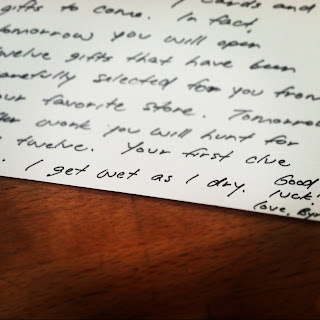 cards and
gifts to come. In fact,
tomorrow you will open
twelve gifts that have been
carefully selected for you from
your favorite store. Tomorrow
work you will hunt for
twelve. Your first clue
. I get wet as I dry. Good
luck!
Love, Byr